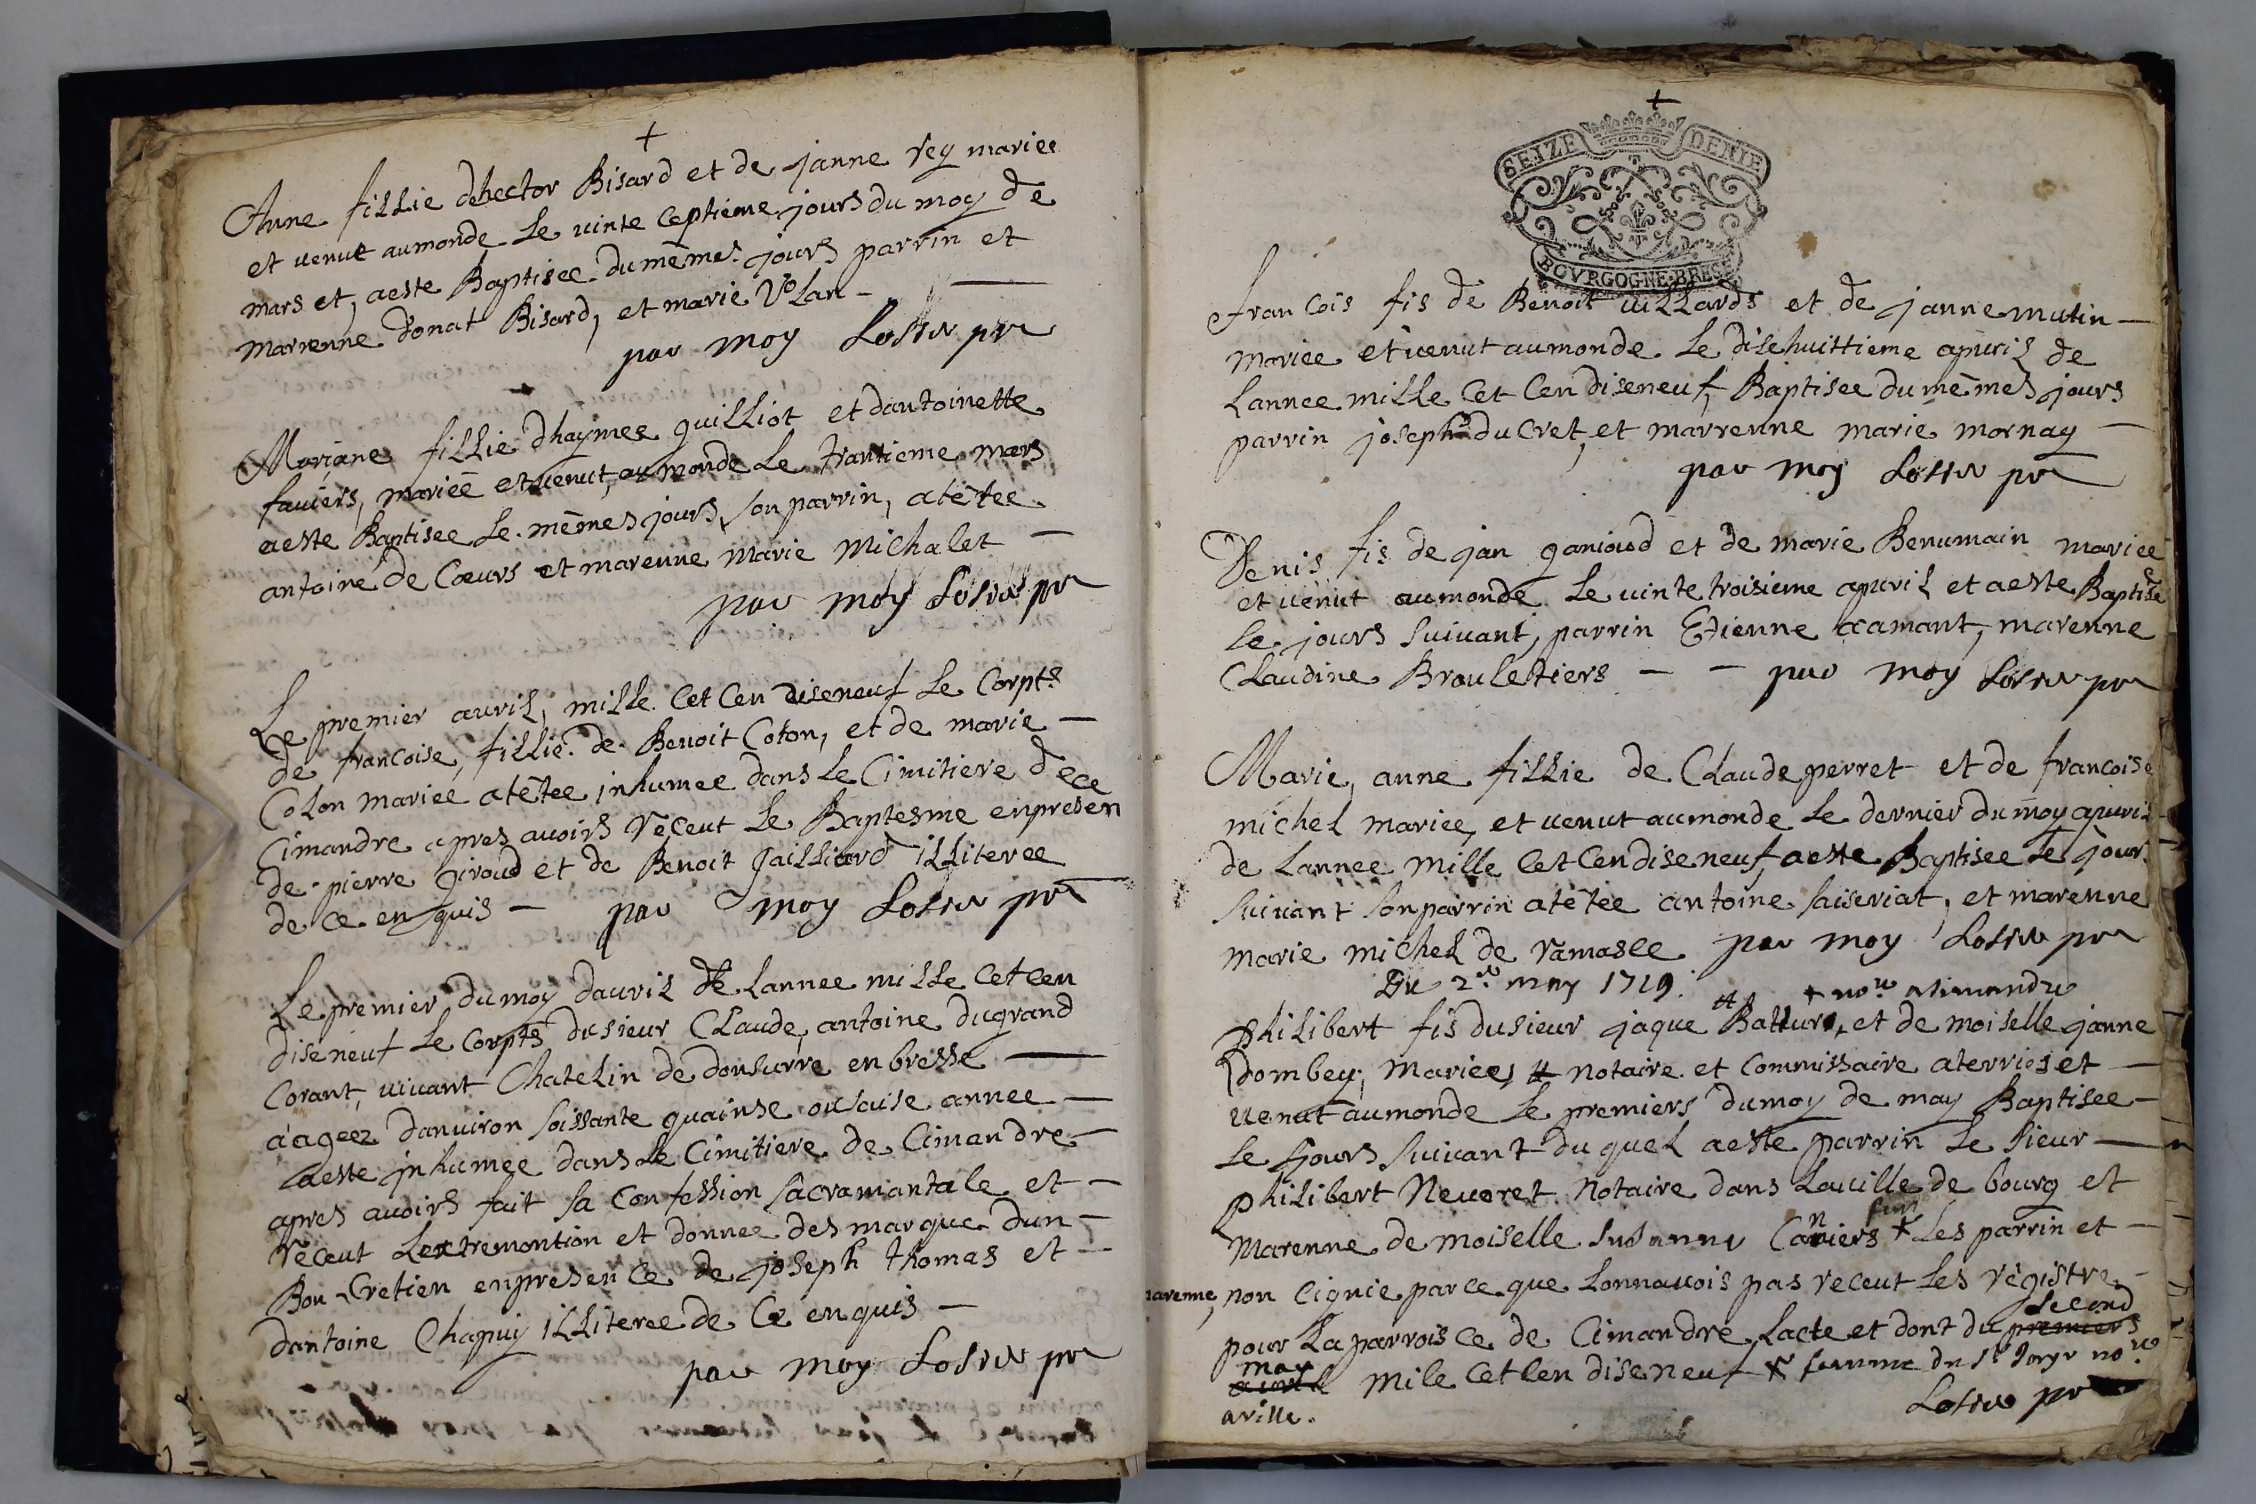 +
Anne fillie dhector Bisard et de janne rey mariee
et venut aumonde Le vinte ceptieme jours du moy de
mars et, aeste Baptisee du mêmes jours parrin et
marrenne donat Bisard, et marie Volan -
par moy Losne pre
Mariane fillie dhaymee guilliot et dantoinette
faviers, mariee et venut, au monde Le trantieme mars
aeste Baptisee Le mêmes jours, son parrin, atêtee
antoine de Cœurs et marenne Marie Michalet -
par moy pre
Le premier avril, mille Cet Cen diseneuf Le Corpts
de francoise, fillie de Benoit Coton, et de marie -
Colon mariee atêtee inhumee dans Le Cimitiere dece
Cimandre apres avoirs receut Le Baptesme enpresen
de pierre giroud et de Benoit Jailliard illiteree
de ce en quis - par moy pre
Le premier du moy davril de Lannee mille Cet Cen
diseneuf Le Corpts du sieur CLaude, antoine dugrand
Corant, vivant Chatelin de donsurre en bresse -
aagees danviron soissante quainse ou saise annee -
aeste inhumee dans Le Cimitiere de Cimandre -
apres avoirs fait sa Confession sacramantale et -
receut Lextremontion et donnee des marque dun -
Bon Cretien enpresence de joseph thomas et -
dantoine Chapuy illiteree de Ce enquis -
par moy pre
+
SEIZE DENIE
BOVRGOGNE·BRESSE
francois fis de Benoit villards et de janne mutin -
mariee et venut aumonde Le disehuittieme apvril de
Lannee mille Cet Cen diseneuf, Baptisee du mêmes jours
parrin joseph du Cret, et marrenne marie mornay -
par moy pre
Denis fis de jan ganioud et de marie Benumain mariee
et venut aumonde Le vinte troisieme apvril et aeste Baptisee
Le jours suivant, parrin Etienne acamant, marenne
CLaudine Brouletiers - - par moy pre
Marie, anne fillie de CLaude perret et de francoise
michel mariee, et venut aumonde Le dernier du moy apvril
de Lannee mille Cet Cen diseneuf, aeste Baptisee Le jours
suivant son parrin atêtee antoine saiseriat, et marenne
marie michel de ramasse par moy pre
Du 2e may 1719.
+ nore a simandre
philibert fis du sieur jaque Batture, et de moiselle janne
Dombey, mariee, # notaire et Commissaire aterries et -
venut aumonde Le premiers du moy de may Baptisee -
Le jours suivant du quel aeste parrin Le sieur -
philibert Neveret Notaire dans Laville de bourg et
Marenne de moiselle susanne Les parrin et -
marenne, non cignie parce que Lonnavois pas receut Les registre -
second
pour La parroisce de Cimandre, Lacte et dont du premiers
may
avril mile Cet Cen diseneuf femme du sr nore
aville.
pre